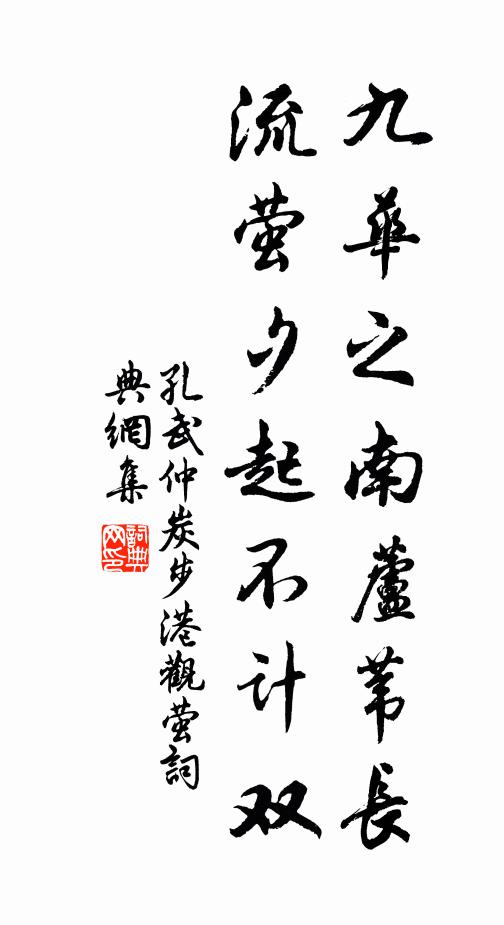 九華之南蘆苇長
流萤夕起不计双
孔武仲炭步港觀萤詞
典網集
詞典
网印